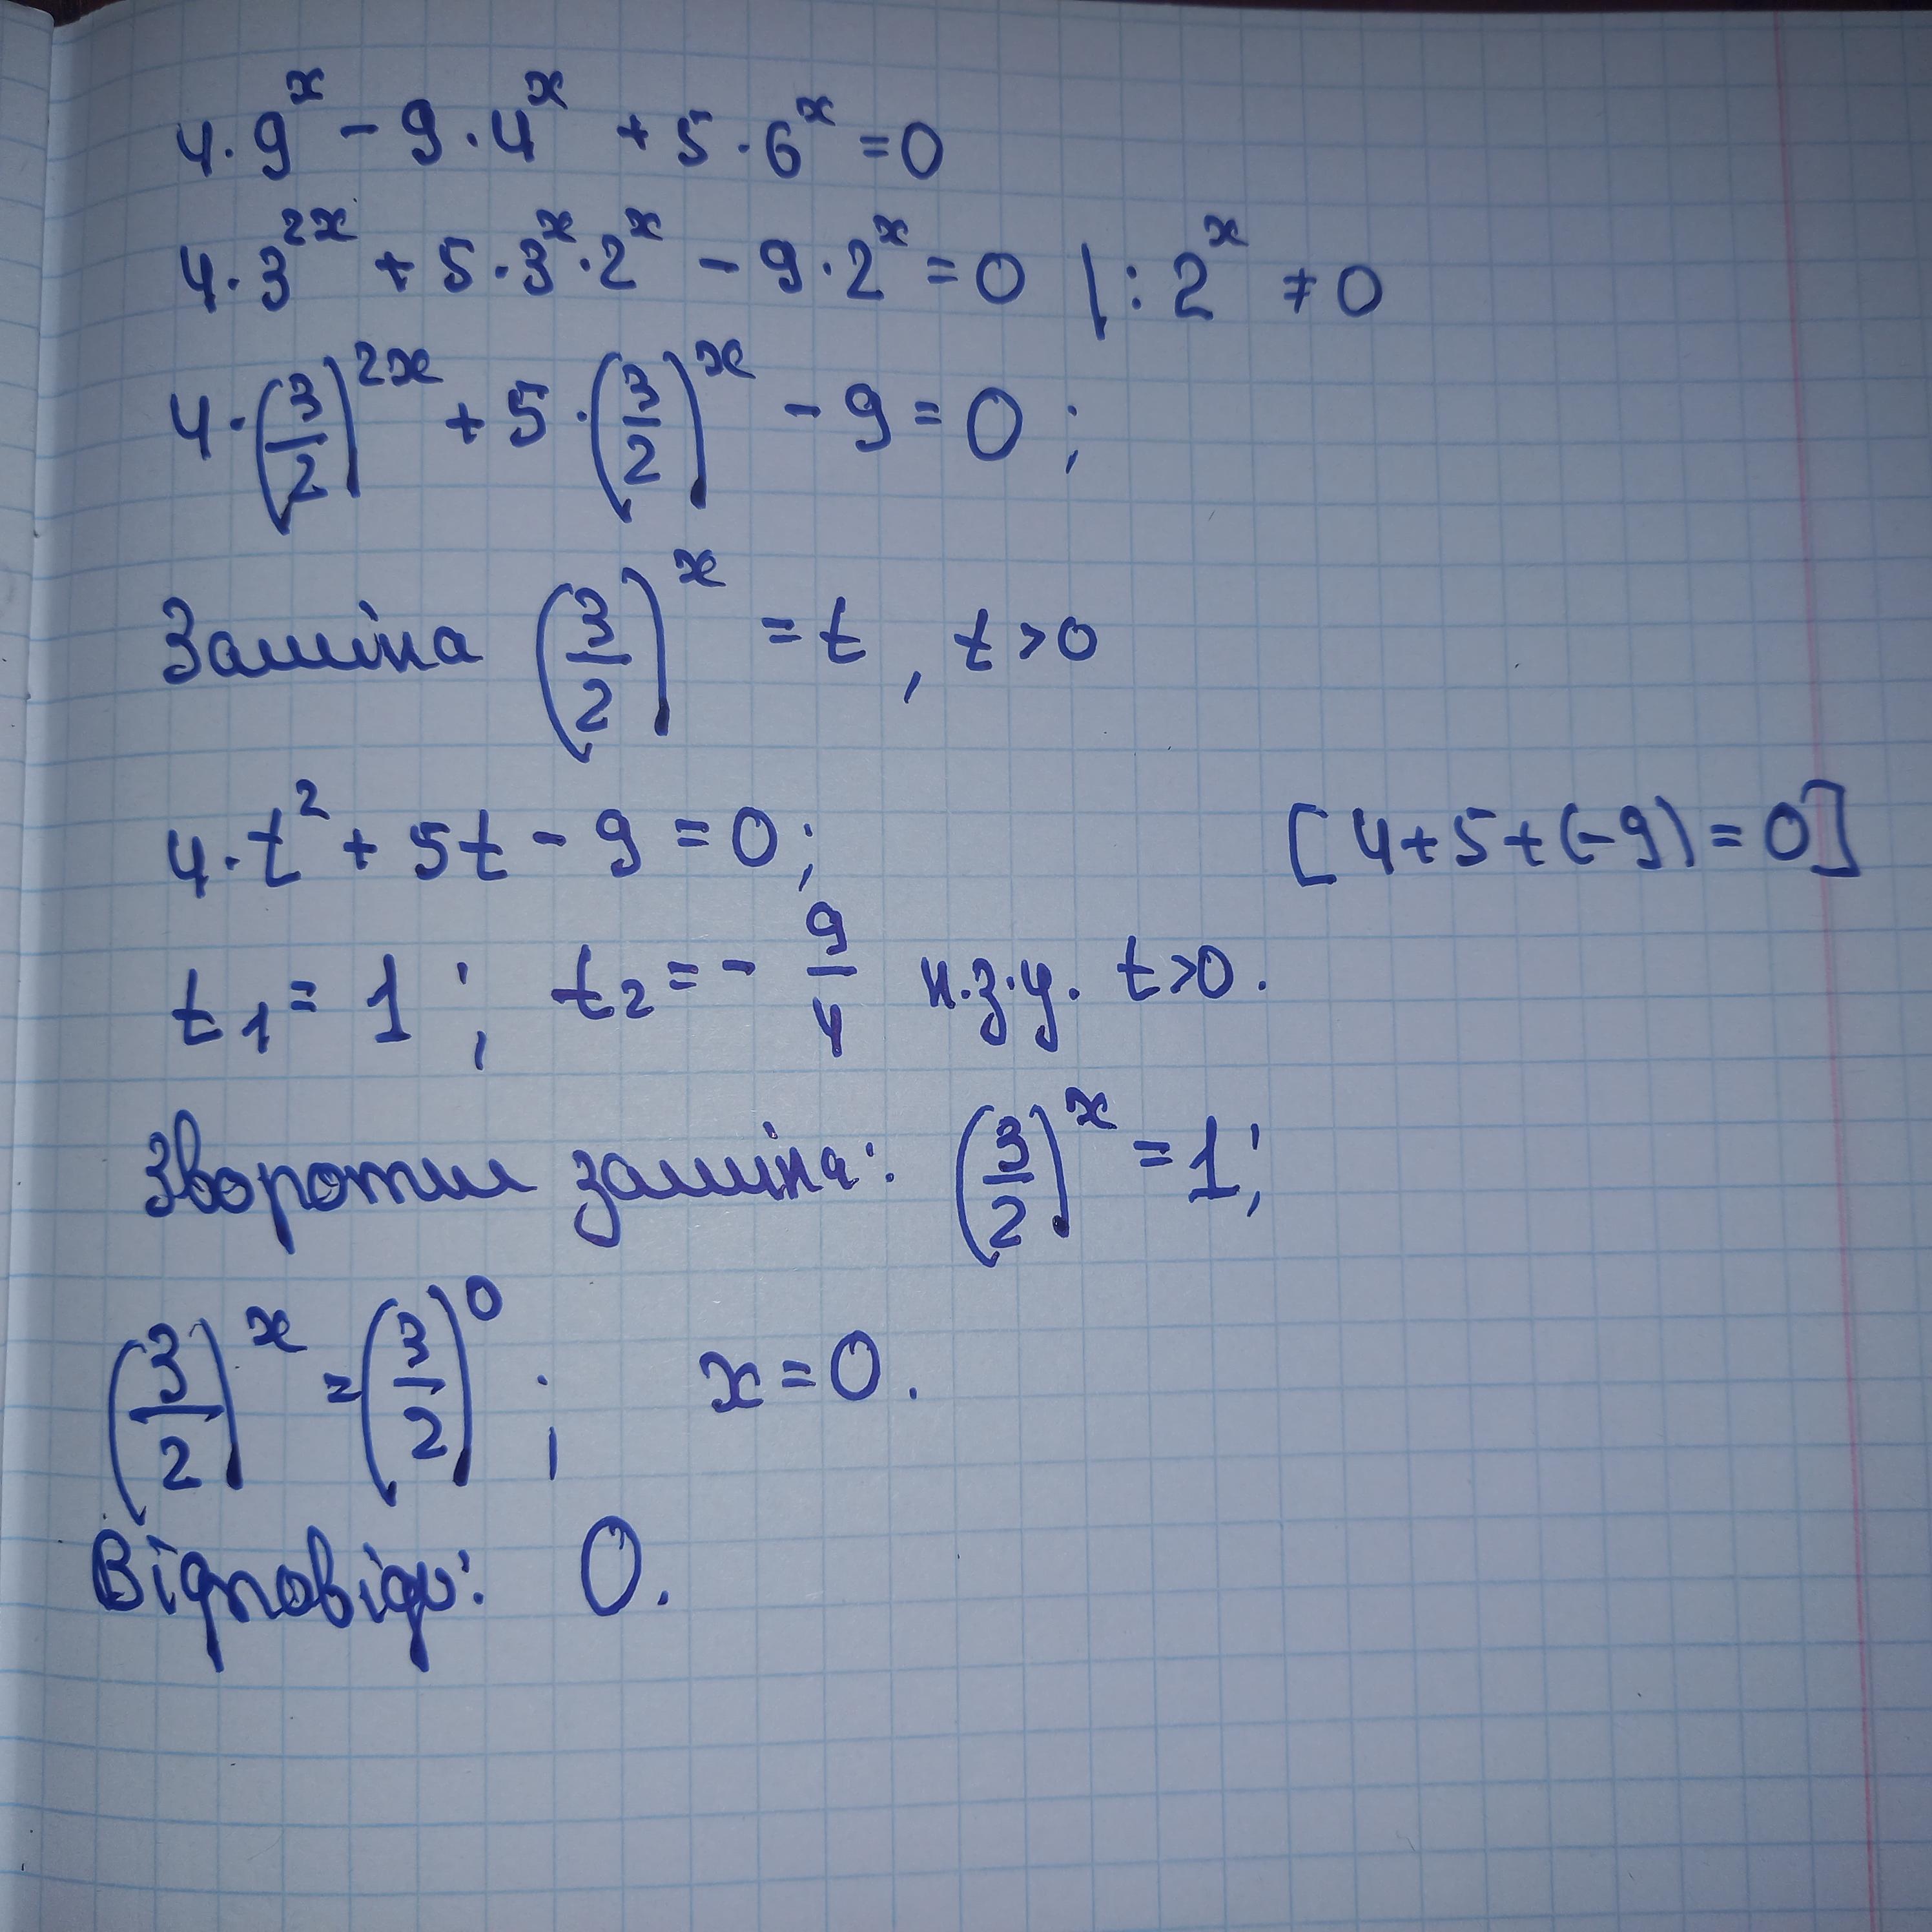 4·9^x - 9·4^x + 5·6^x = 0
4·3^{2x} + 5·3^x·2^x - 9·2^x = 0 |:2^x ≠ 0
4·(3/2)^{2x} + 5·(3/2)^x - 9 = 0;
Заміна (3/2)^x = t, t>0
4·t^2 + 5t - 9 = 0; [4+5+(-9)=0]
t_1 = 1; t_2 = - 9/4 н.з.у. t>0.
Зворотня заміна: (3/2)^x = 1;
(3/2)^x = (3/2)^0; x = 0.
Відповідь: 0.